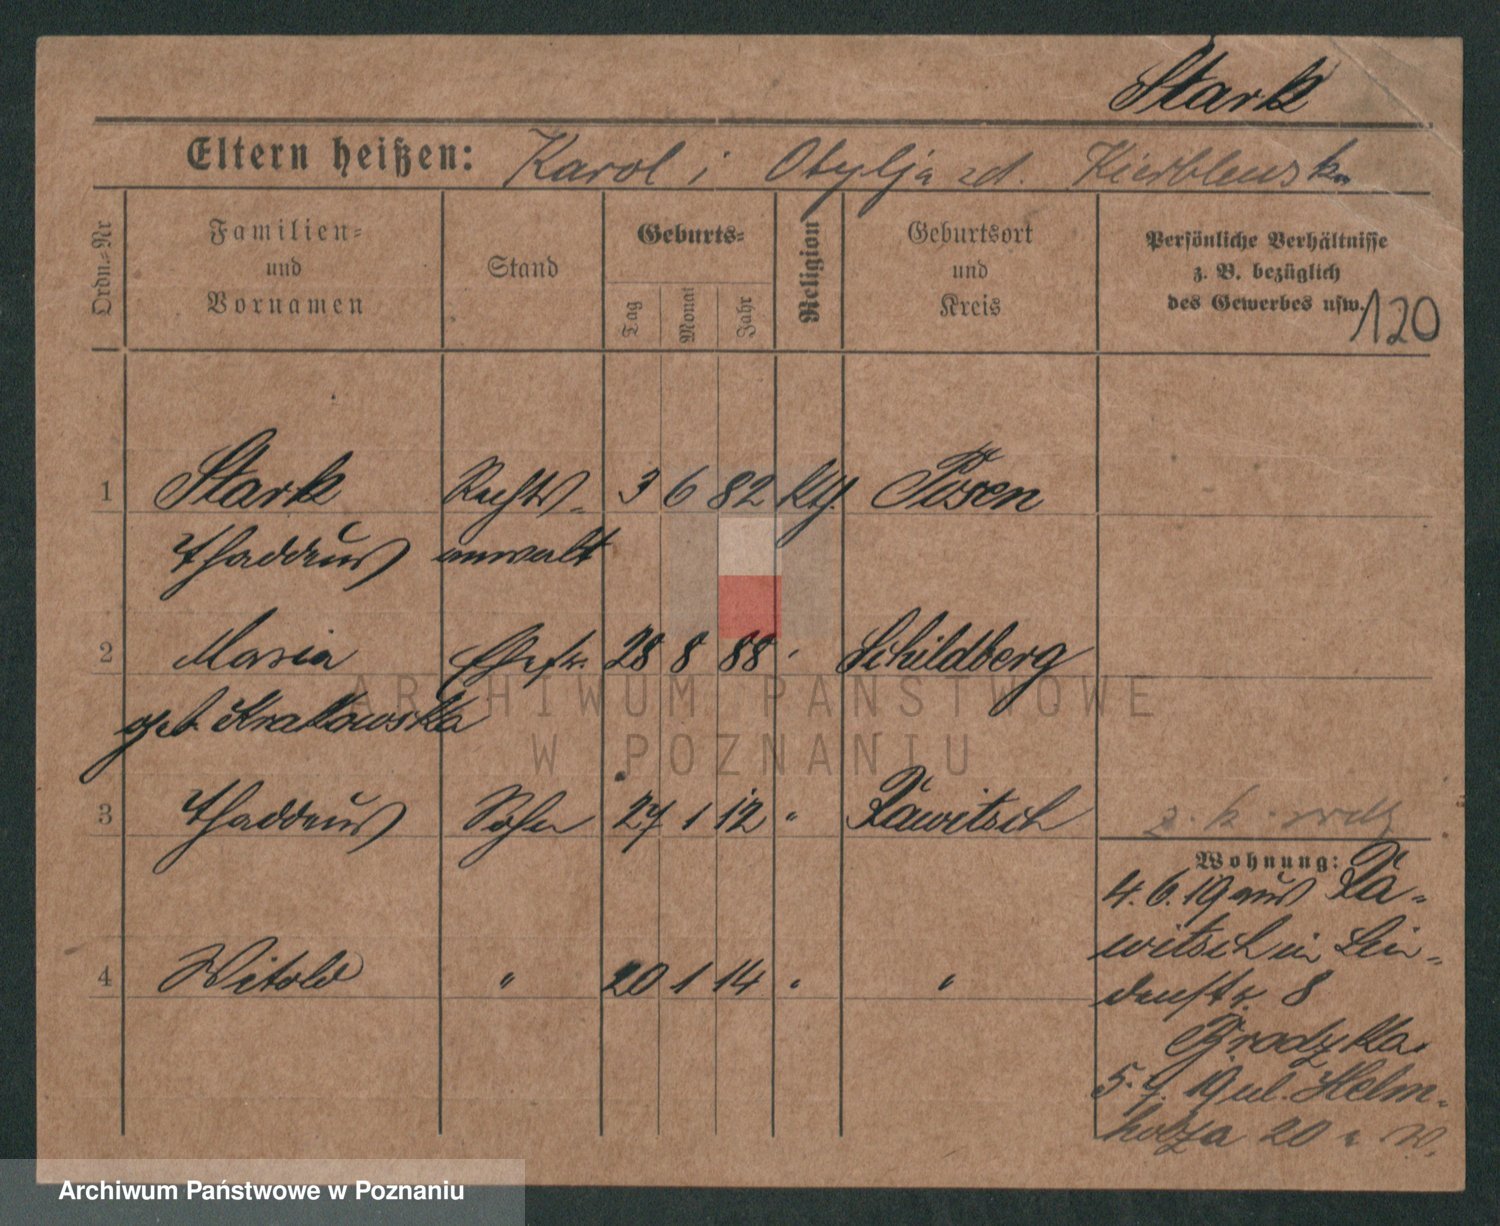 Stark
Eltern heißen: Karol i Otylja zd.
Ordn.-Nr
Familien-
und
Vornamen
Stand
Geburts-
Tag
Monat
Jahr
Religion
Geburtsort
und
Kreis
Persönliche Verhältnisse
z. B. bezüglich
des Gewerbes usw.
120
1 Stark Rechts- 3 6 82 kth. Posen
Thaddeus anwalt
2 Maria Ehefr. 28 8 88 " Schildberg
geb. Krakowska
3 Thaddeus Sohn 27 1 12 " Rawitsch
4 Witold " 20 1 14 " "
Wohnung:
4.6.19 aus Ra-
witsch in Lin-
denstr. 8
5.7.19 ul. Helm-
holza 20
ARCHIWUM PAŃSTWOWE
W POZNANIU
Archiwum Państwowe w Poznaniu